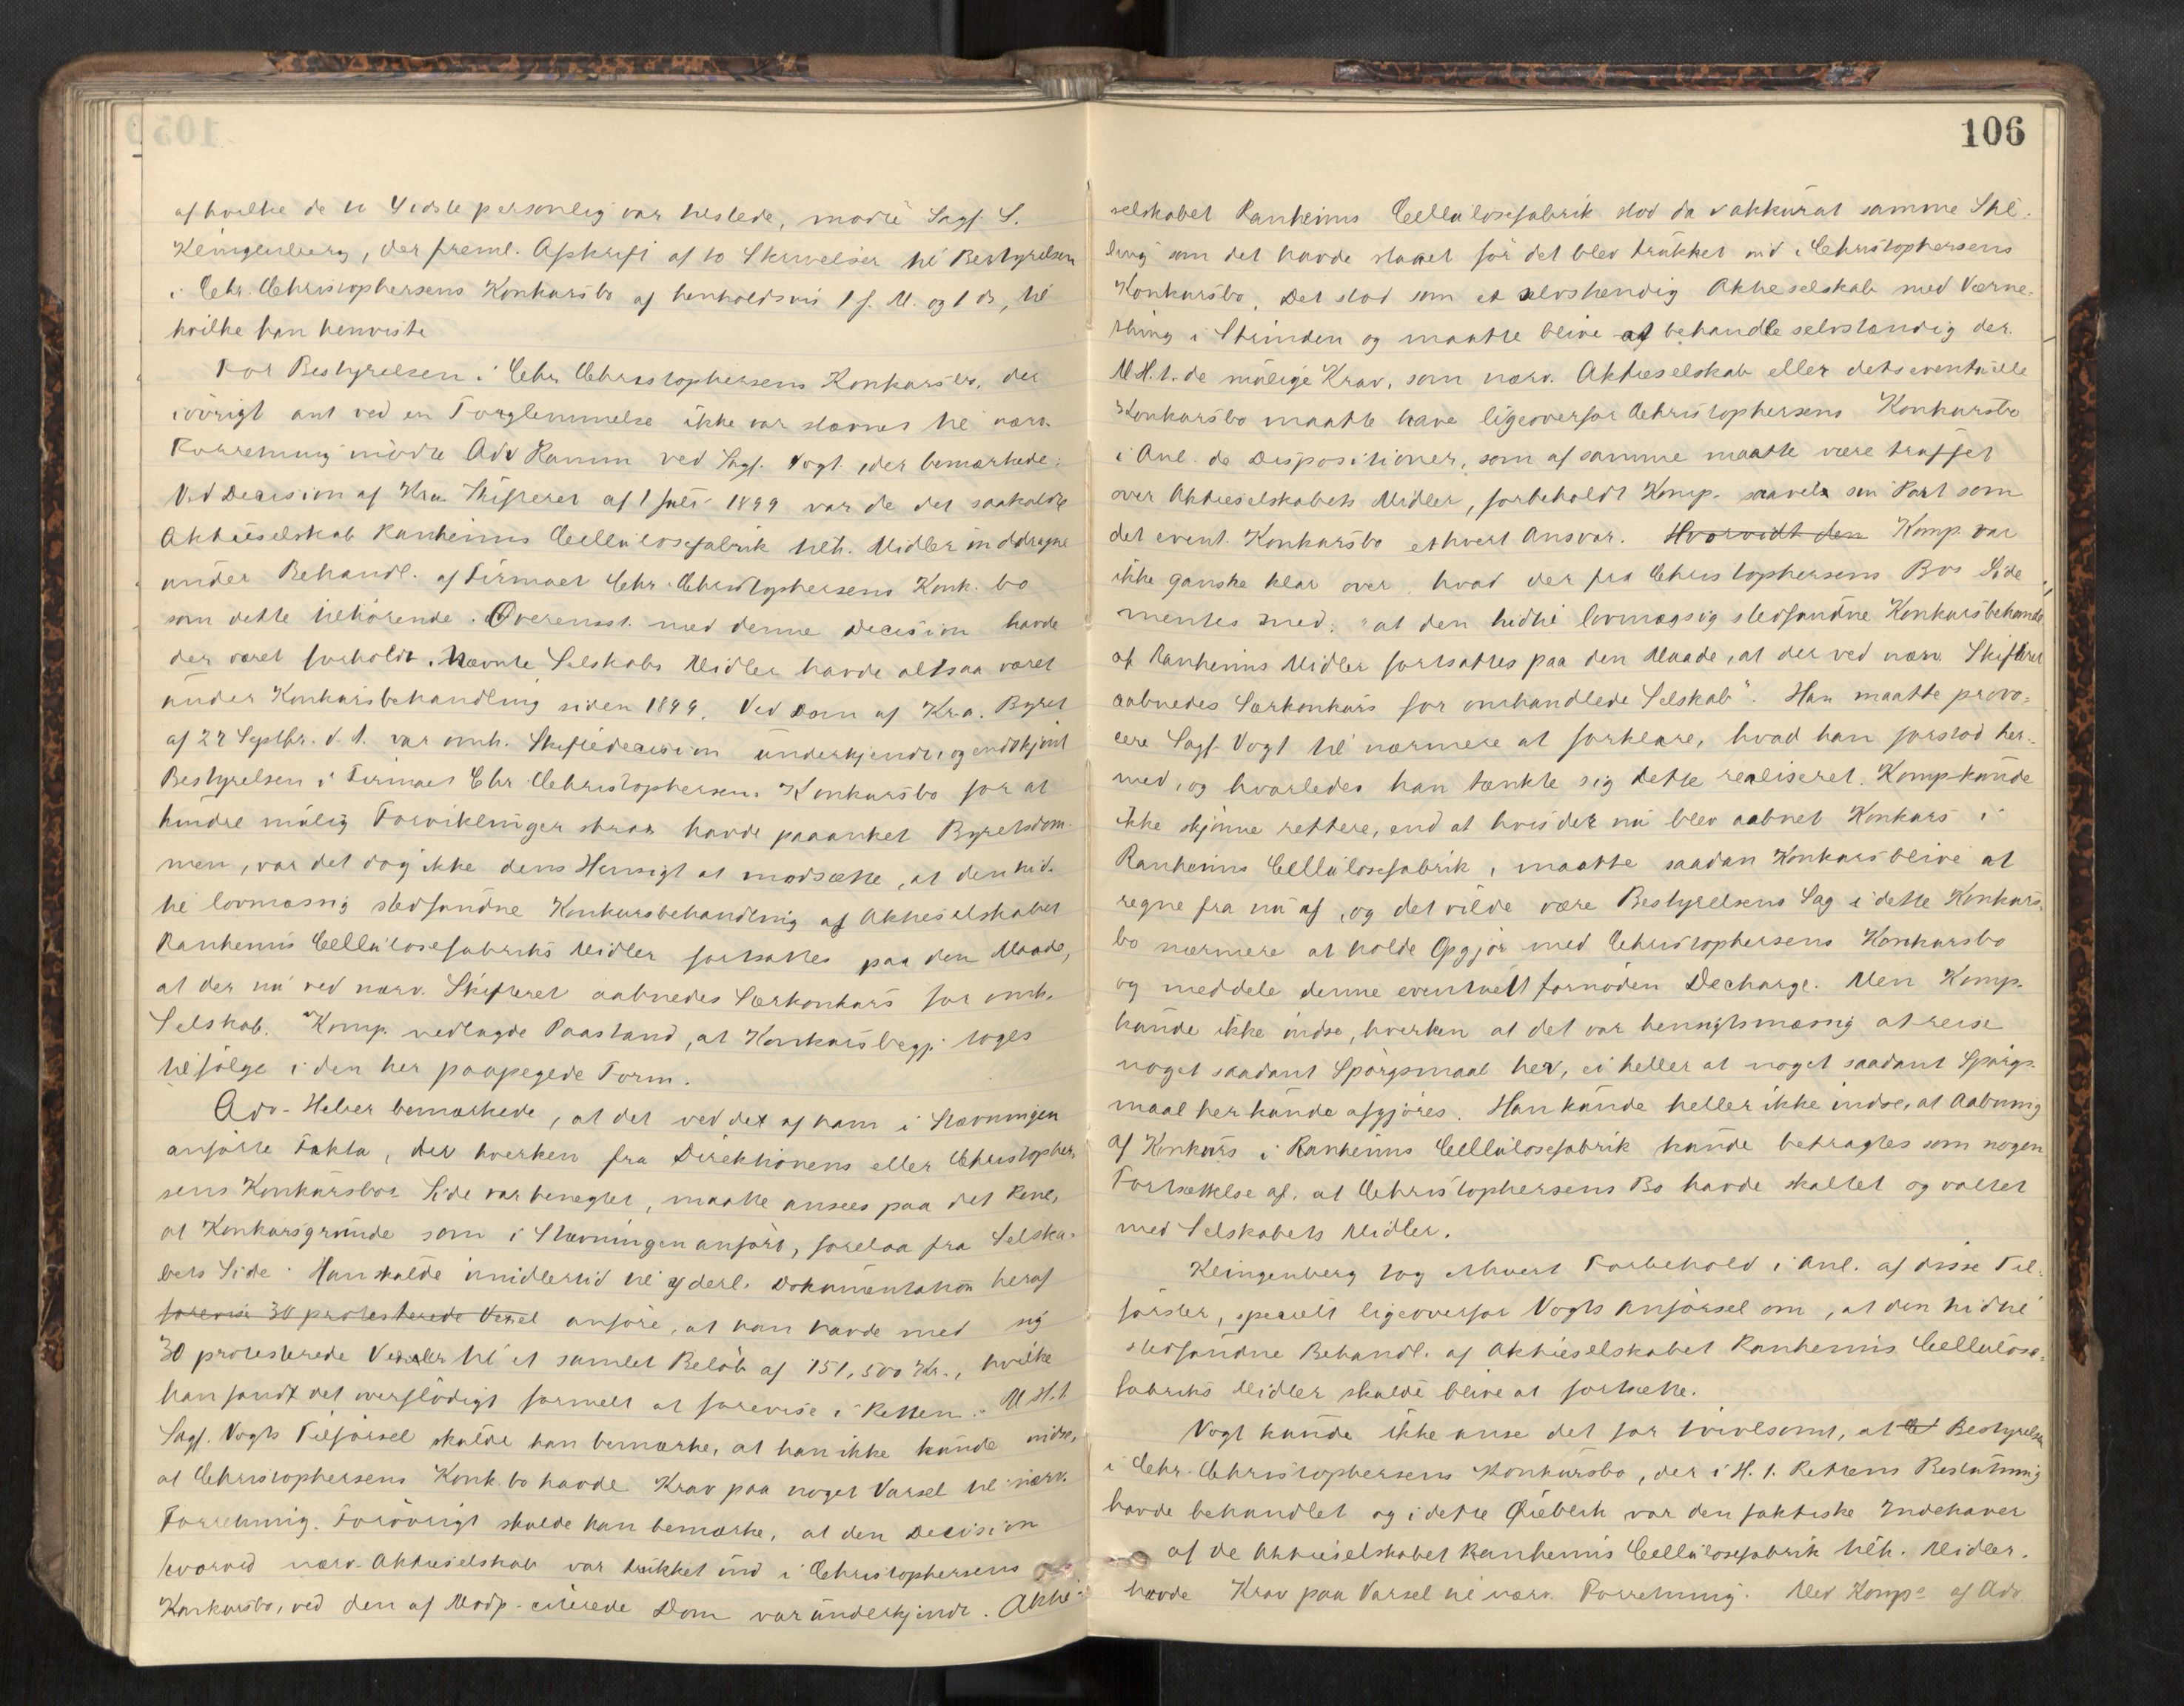 af hvilke de to sidste personlig var tilstede, mødte Sagf. S.
Klingenberg, der freml. Afskrift af to Skrivelser til Bestyrelsen
i Chr. Christophersens Konkursbo af henholdsvis 1 f. M. og 1 ds, til
hvilke han henviste
For Bestyrelsen i Chr. Christophersens Konkursbo, der
iøvrigt ant ved en Forglemmelse ikke var stævnet til nærv.
Forretning mødte Adv Ramm ved Sagf. Vogt, der bemærkede:
Ved Decision af Kra. Skifteret af 1 Juli 1899 var de det saakaldte
Aktieselskab Ranheims Cellulosefabrik tilh. Midler inddragne
under Behandl. af Firmaet Chr. Christophersens Konk. bo
som dette tilhørende. Overensst. med denne Decision havde
der været forholdt. Nævnte Selskabs Midler havde altsaa været
under Konkursbehandling siden 1899. Ved Dom af Kra. Byret
af 27 Septbr. d. A. var omh. Skiftedecision underkjendt, og endskjønt
Bestyrelsen i Firmaet Chr. Christophersens Konkursbo for at
hindre mulig Forviklinger strax havde paaanket Byretsdom-
men, var det dog ikke dens Hensigt at modsætte, at den hid-
til lovmæssig stedfundne Konkursbehandling af Aktieselskabet
Ranheims Cellulosefabriks Midler fortsattes paa den Maade,
at der nu ved nærv. Skifteret aabnedes Særkonkurs for omh.
Selskab. Komp. nedlagde Paastand, at Konkursbegj. toges
tilfølge i den her paapegede Form.
Adv. Heber bemærkede, at det ved det af ham i Stævningen
anførte Fakta, der hverken fra Direktionens eller Christopher-
sens Konkursbos Side var benægtet, maatte ansees paa det Rene,
at Konkursgrunde som i Stævningen anført, forelaa fra Selska-
bets Side. Han skulde imidlertid til yderl. Dokumentation heraf
forevise 30 protesterede Vexel anføre, at han havde med sig
30 protesterede Vexler til et samlet Beløb af 151,500 Kr., hvilke
han fandt det overflødigt formelt at forevise i Retten. M. H. t.
Sagf. Vogts Tilførsel skulde han bemærke, at han ikke kunde indse,
at Christophersens Konk. bo havde Krav paa noget Varsel til nærv.
Forretning. Forøvrigt skulde han bemærke, at den Decision
hvorved nærv. Aktieselskab var trukket ind i Christophersens
Konkursbo, ved den af Modp. citerede Dom var underkjendt. Aktie-
106
selskabet Ranheims Cellulosefabrik stod da i akkurat samme Stil-
ling som det havde staaet før det blev trukket ind i Christophersens
Konkursbo. Det stod som et selvstændig Aktieselskab med Værne-
thing i Strinden og maatte blive at behandle selvstændig der.
M. H. t. de mulige Krav, som nærv. Aktieselskab eller dets eventuelle
Konkursbo maatte have ligeoverfor Christophersens Konkursbo
i Anl. de Dispositioner, som af samme maatte være truffet
over Aktieselskabets Midler, forbeholdt Komp. saavel sin Part som
det event. Konkursbo ethvert Ansvar. Hvorvidt den Komp. var
ikke ganske klar over hvad der fra Christophersens Bos Side
mentes med: "at den hidtil lovmæssig stedfundne Konkursbehandl
af Ranheims Midler fortsattes paa den Maade, at der ved nærv. Skifteret
aabnedes Særkonkurs for omhandlede Selskab". Han maatte provo-
cere Sagf. Vogt til nærmere at forklare, hvad han forstod her-
med, og hvorledes han tænkte sig dette realiseret. Komp kunde
ikke skjønne rettere, end at hvis der nu blev aabnet Konkurs i
Ranheims Cellulosefabrik, maatte saadan Konkurs blive at
regne fra nu af, og det vilde være Bestyrelsens Sag i dette Konkurs-
bo nærmere at holde Opgjør med Christophersens Konkursbo
og meddele denne eventuelt fornøden Decharge. Men Komp.
kunde ikke indse, hverken at det var hensigtsmæssig at reise
noget saadant Spørgsmaal her, ei heller at noget saadant Spørgs-
maal her kunde afgjøres. Han kunde heller ikke indse, at Aabning
af Konkurs i Ranheims Cellulosefabrik kunde betragtes som nogen
Fortsættelse af, at Christophersens Bo havde skaltet og valtet
med Selskabets Midler.
Klingenberg tog ethvert Forbehold i Anl. af disse Til-
førsler, specielt ligeoverfor Vogts Anførsel om, at den hidtil
stedfundne Behandl. af Aktieselskabet Ranheims Cellulose-
fabriks Midler skulde blive at fortsætte.
Vogt kunde ikke anse det for tvivlsomt, at Bestyrelsen
i Chr. Christophersens Konkursbo, der i H. t. Rettens Beslutning
havde behandlet og i dette Øieblik var den faktiske Indehaver
af de Aktieselskabet Ranheims Cellulosefabrik tilh. Midler.
havde Krav paa Varsel til nærv. Forretning. Med Komp. af Adv.